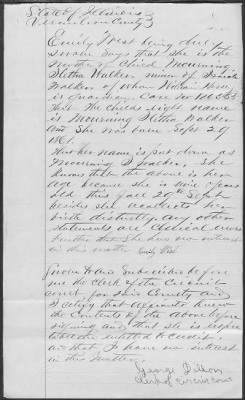 State of Illinois
Vermilion County
Emily West being duly
sworn says that she is the
mother of Child Mourning
Aletha Walker minor of
Walker of whom William
is Guardian. Case No
That the childs right name
is Mourning Aletha Walker
and she was born Sept 29
1861.
Her name is put down as
Mourning Walker. She
knows that the above is her
age because she is nine years
old this fall 29th Sept
besides she recollects her
birth distinctly, any other
statements are clerical errors
further that she has no interest
in this matter Emily West
Sworn to and Subscribed before
me the Clerk of the Circuit
court for this County and
I certify that affiant knew
the contents of the above before
signing and that she is respec
table and entitled to credit,
and that I have no interest
in this matter.
George Dillon
Clerk of Circuit Court